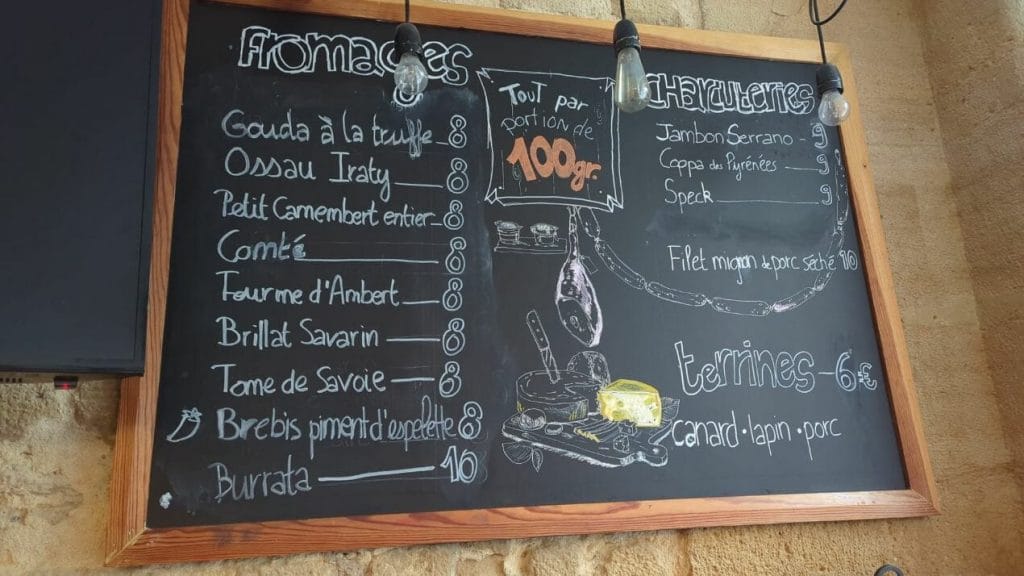 Fromages
Gouda à la truffe 8
Ossau Iraty 8
Petit Camembert entier 8
Comté 8
Fourme d'Ambert 8
Brillat Savarin 8
Tome de Savoie 8
Brebis piment d'espelette 8
Burrata 10
Tout par
portion de
100gr.
Charcuteries
Jambon Serrano 9
Coppa des Pyrénées 9
Speck 9
Filet mignon de porc séché 10
terrines - 6€
canard • lapin • porc